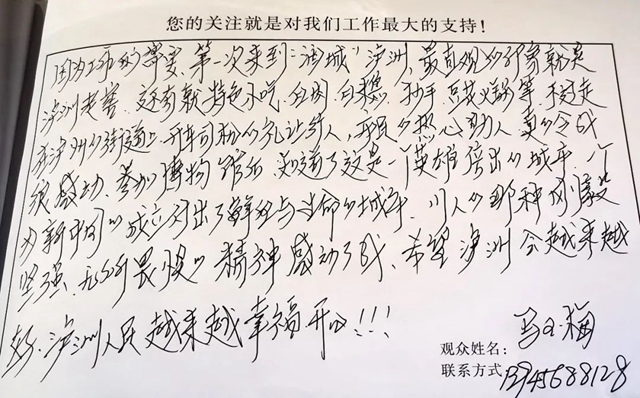 您的关注就是对我们工作最大的支持！
因为工作的需要，第一次来到"酒城"泸州，最直观的印象就是
泸州老窖，还有就特色小吃，白肉、白糕、猪手、豆花火锅等，走
在泸州的街道上，开车司机的礼让行人，市民的热心助人，真的令我
很感动，参加博物馆后，知道了这是一个英雄倍出的城市，一个
为新中国的成立付出了鲜血与生命的城市，川人的那种刚毅
坚强、无所畏惧的精神感动了我，希望泸州会越来越
好，泸州人民越来越幸福开心！！！
观众姓名：
联系方式：13945688128